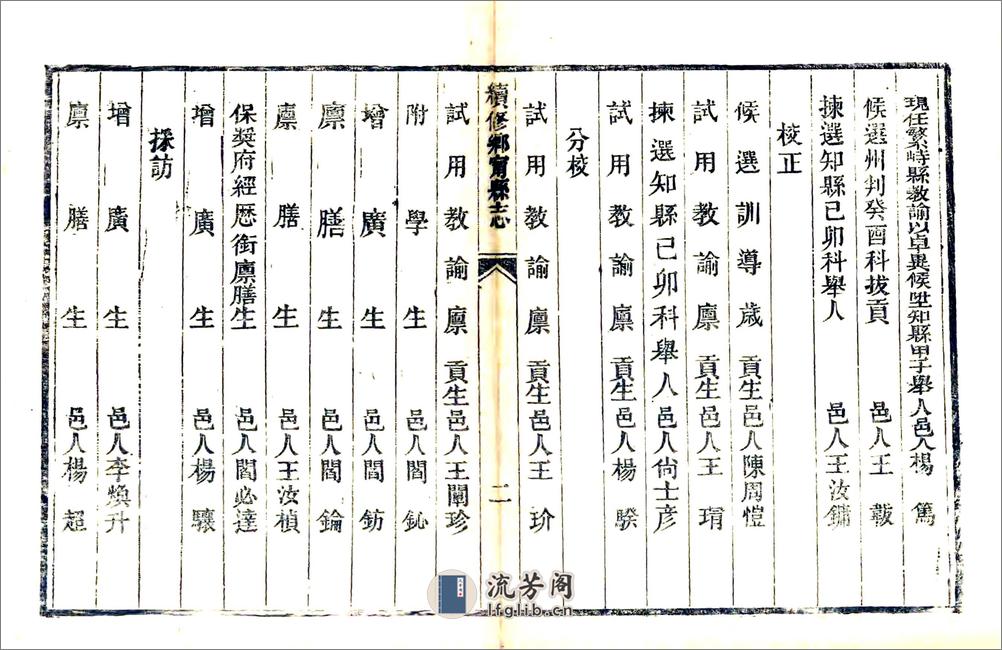 現任繁峙縣教諭以卓異候陞知縣甲子舉人邑人楊篤
候選州判癸酉科拔貢邑人王㦸
揀選知縣己卯科舉人邑人王汝鏞
校正
候選訓導歲貢生邑人陳周愷
試用教諭廩貢生邑人王瑻
揀選知縣己卯科舉人邑人尙士彦
試用教諭廩貢生邑人楊騤
分校
試用教諭廩貢生邑人王玠
續修鄉甯縣志
二
試用教諭廩貢生邑人王闡珍
附學生邑人閻鈊
增廣生邑人閻鈁
廪膳生邑人閻錀
廪膳生邑人王汝楨
保奨府經歷銜廩膳生邑人閻必達
增廣生邑人楊驤
採訪
增廣生邑人李煥升
廪膳生邑人楊超
流芳阁
lfglib.cn